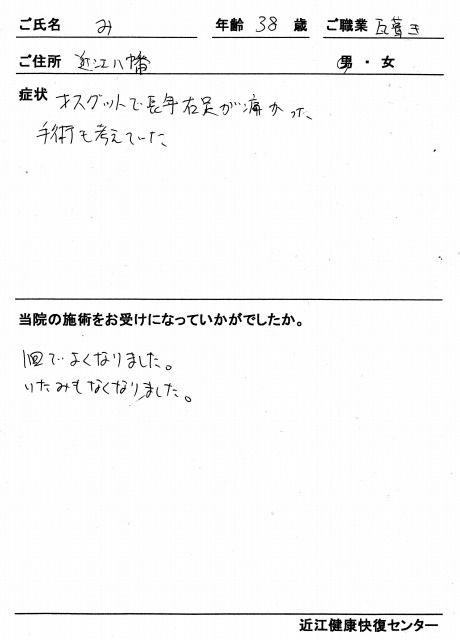 ご氏名 み 年齢 38 歳 ご職業 瓦葺き
ご住所 近江八幡 男・女
症状 オスグットで長年右足が痛かった、
手術も考えていた
当院の施術をお受けになっていかがでしたか。
1回でよくなりました。
いたみもなくなりました。
近江健康快復センター